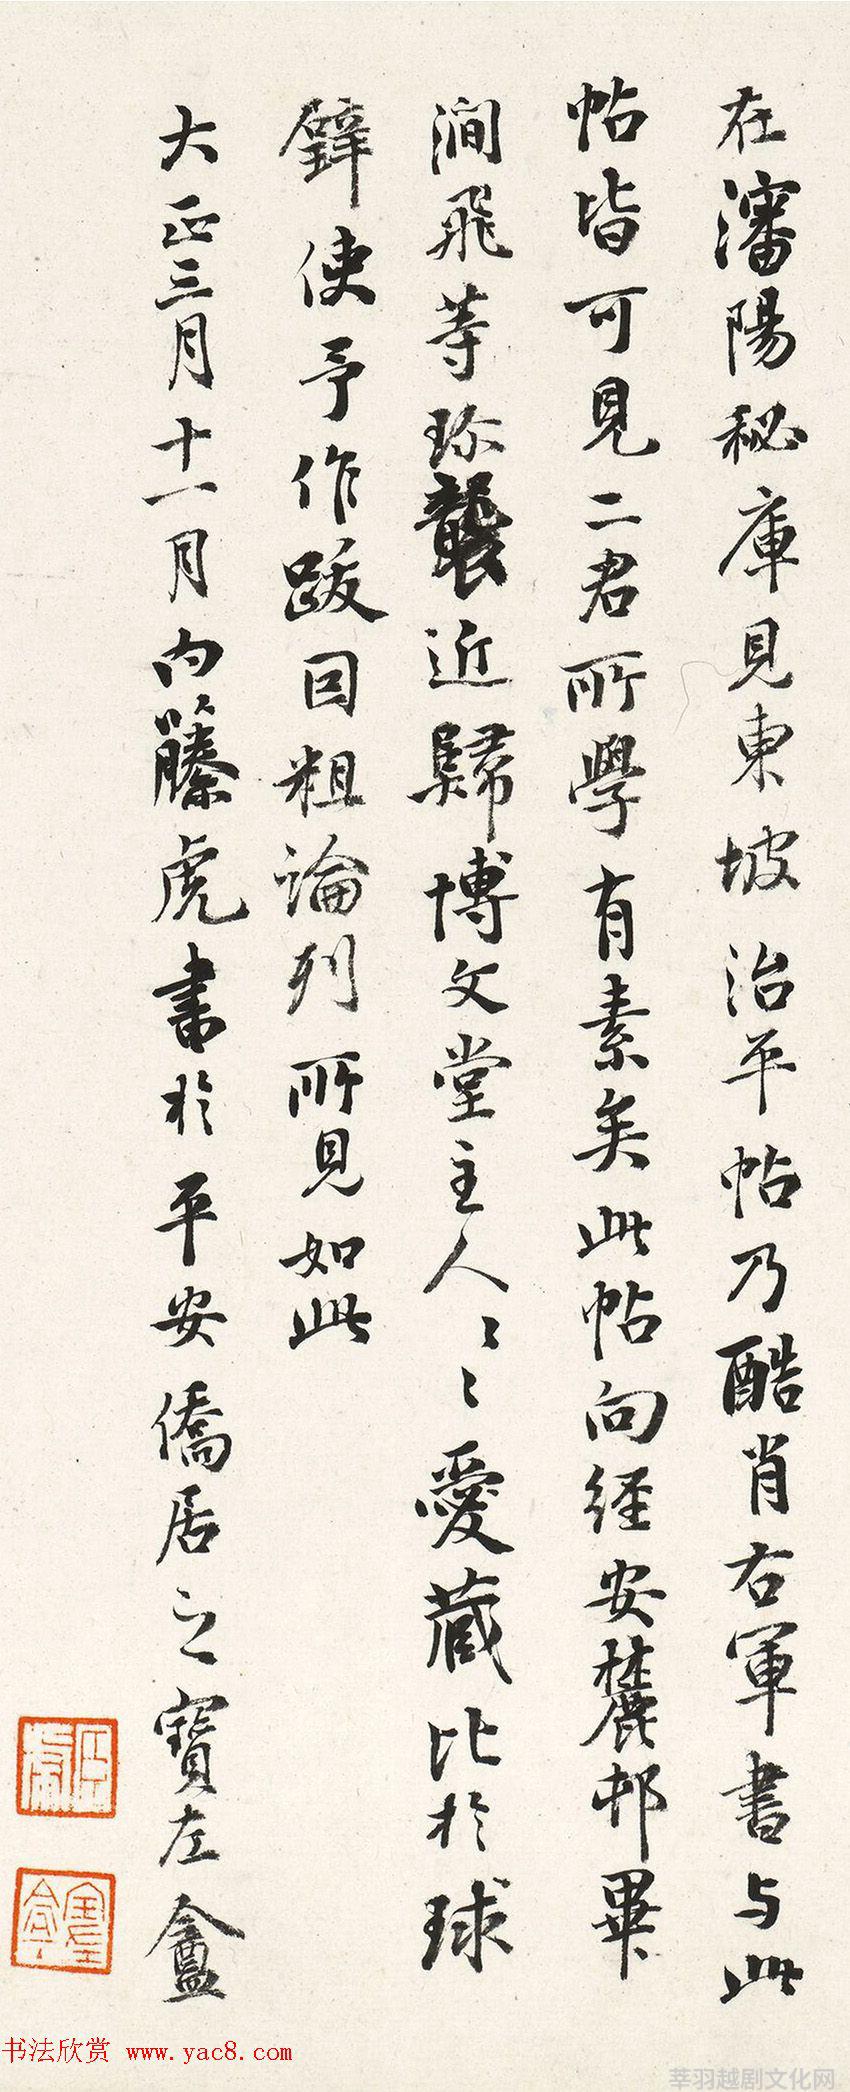 在瀋陽秘庫見東坡治平帖乃酷肖右軍書与此
帖皆可見二君所學有素矣此帖向經安麓邨畢
澗飛等珎襲近歸博文堂主人〻〻愛藏比於球
鐸使予作跋因粗論列所見如此
大正三月十一月内藤虎書於平安僑居之寶左盦
臣虎
寶左盦
书法欣赏 www.yac8.com
莘羽越剧文化网